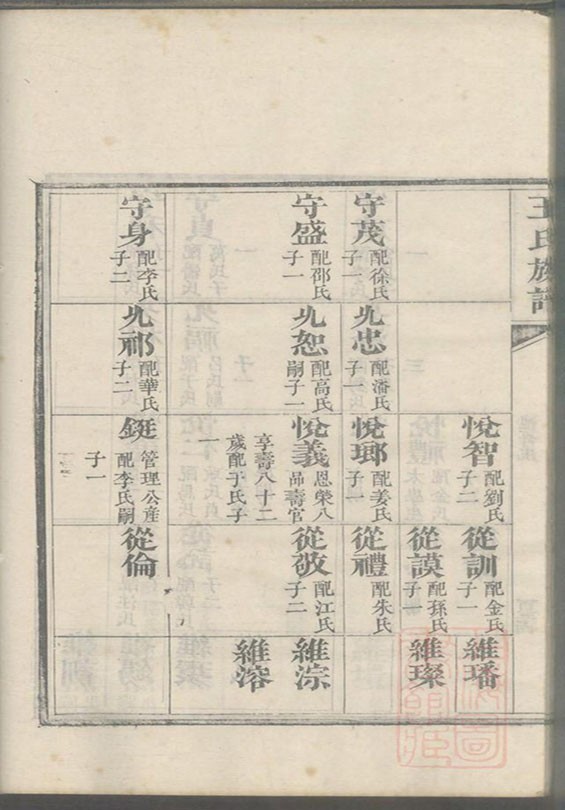 王氏族譜
守茂 配徐氏 子一
守盛 配邵氏 子一
守身 配李氏 子二
九忠 配潘氏 子一
九恕 配高氏 嗣子一
九祁 配華氏 子二
悅智 配劉氏 子二
悅瑯 配姜氏 子一
悅義 恩榮八品壽官
享壽八十二歲配于氏子一
鋌 管理公産 配李氏嗣子一
從訓 配金氏 子一
從謨 配孫氏 子一
從禮 配朱氏
從敬 配江氏 子二
從倫
維璠
維璨
維淙
維溶